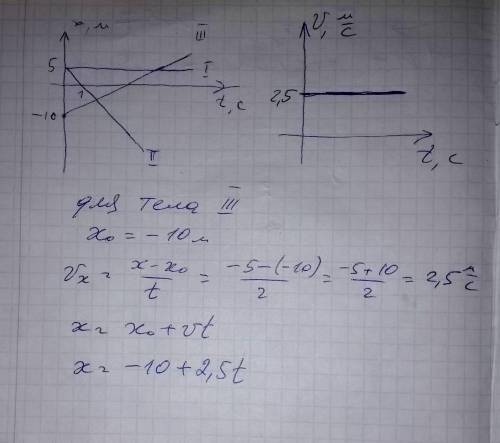 x, м
III
5
I
1
t, с
-10
II
V, м/с
2,5
t, с
для тела III
x₀ = -10 м
Vₓ = (x-x₀)/t = (-5-(-10))/2 = (-5+10)/2 = 2,5 м/с
x = x₀ + vt
x = -10 + 2,5t